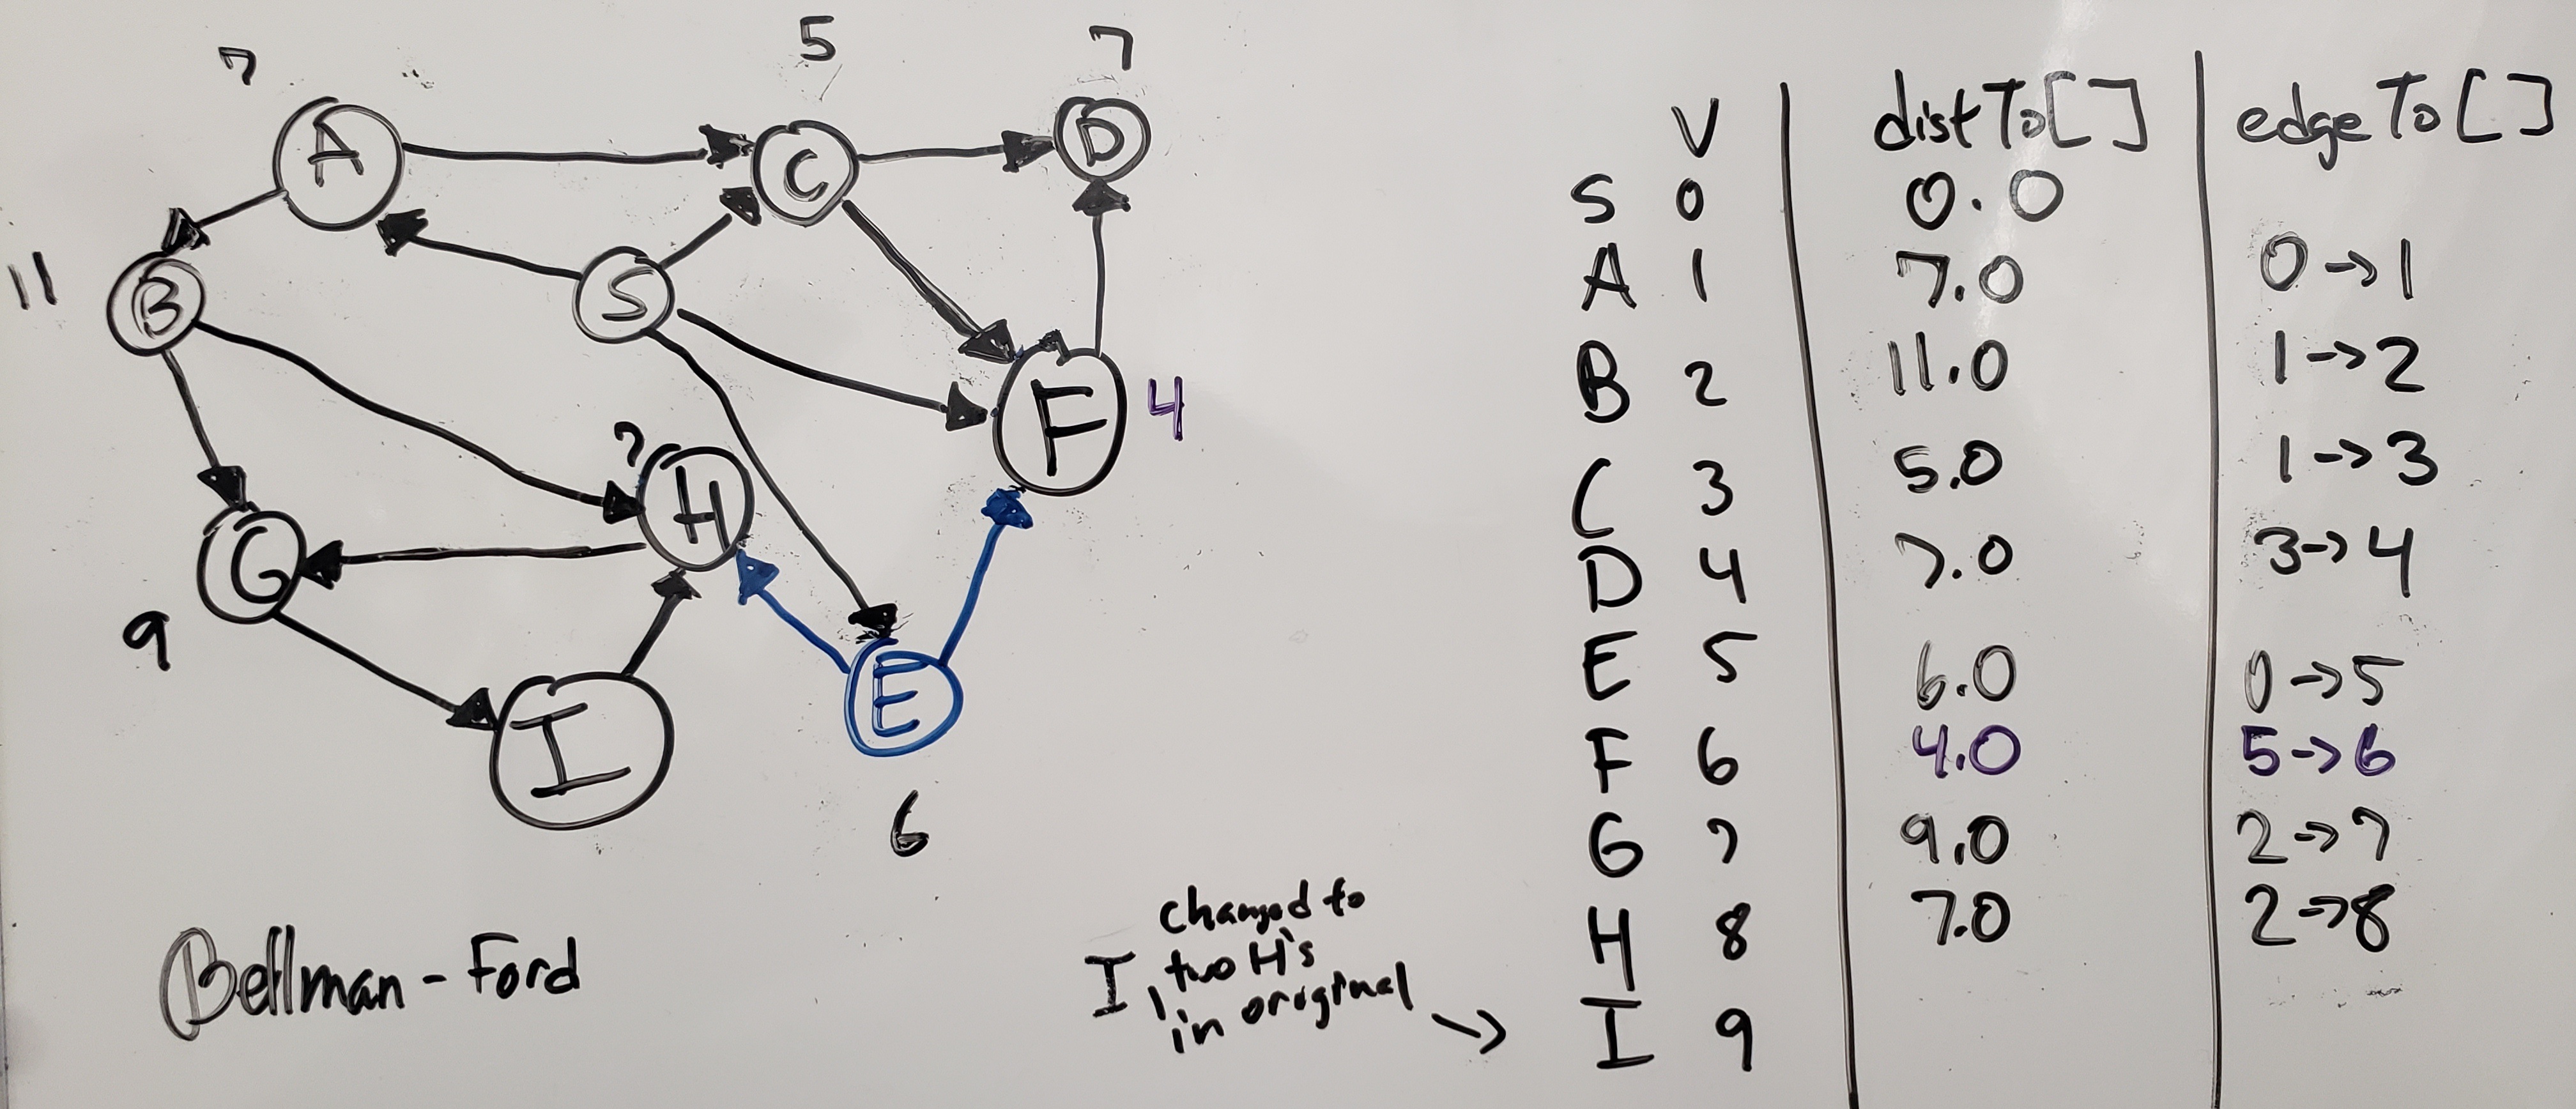 7
5
7
A
C
D
11
B
S
F
4
?
H
G
9
I
E
6
Bellman-Ford
I, changed to
two H's
in original ->
V distTo[] edgeTo[]
S 0 0.0
A 1 7.0 0->1
B 2 11.0 1->2
C 3 5.0 1->3
D 4 7.0 3->4
E 5 6.0 0->5
F 6 4.0 5->6
G 7 9.0 2->7
H 8 7.0 2->8
I 9